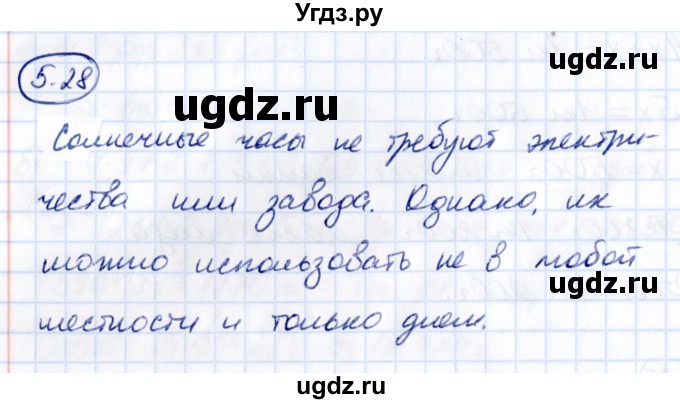 Угдз.ру
5.28
ugdz.ru
ugdz.ru
Солнечные часы не требуют электри-
чества или завода. Однако, их
ugdz.ru
можно использовать не в любой
ugdz.ru
местности и только днем.
ugdz.ru